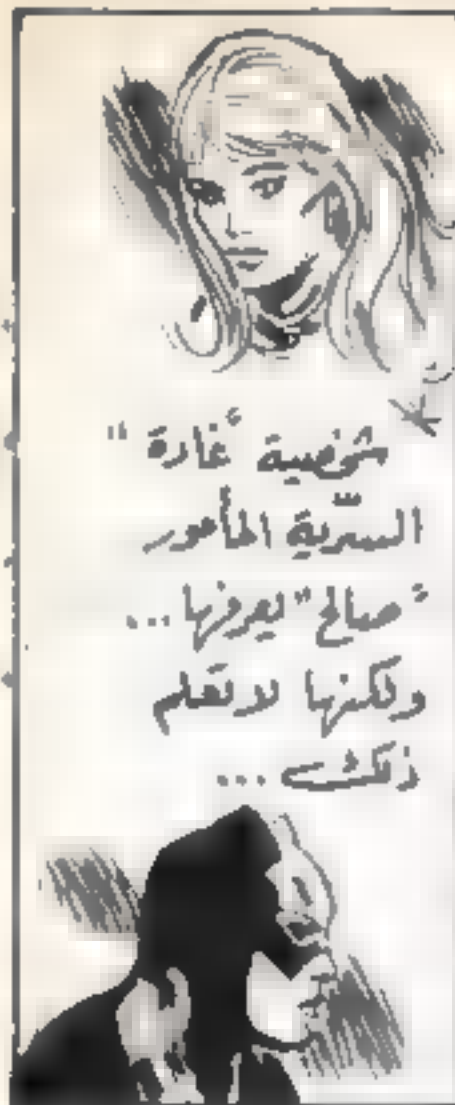 شخصية "غادة"
السرّية المأمور
"صالح" يعرفها...
ولكنها لا تعلم
ذلك...